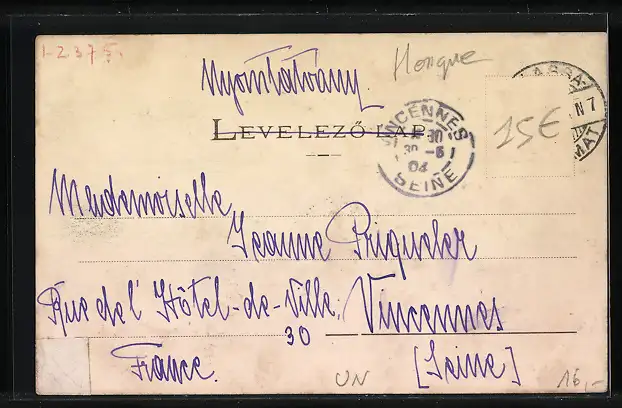 1-2375.
Nyomtatvany
Hongrie
LEVELEZŐ-LAP.
VINCENNES
30 -6
04
SEINE
N 7
15€
Mademoiselle
Jeanne Priqueler
Rue de l'Hôtel-de-Ville, Vincennes
30
France. [Seine]
UN
16,-